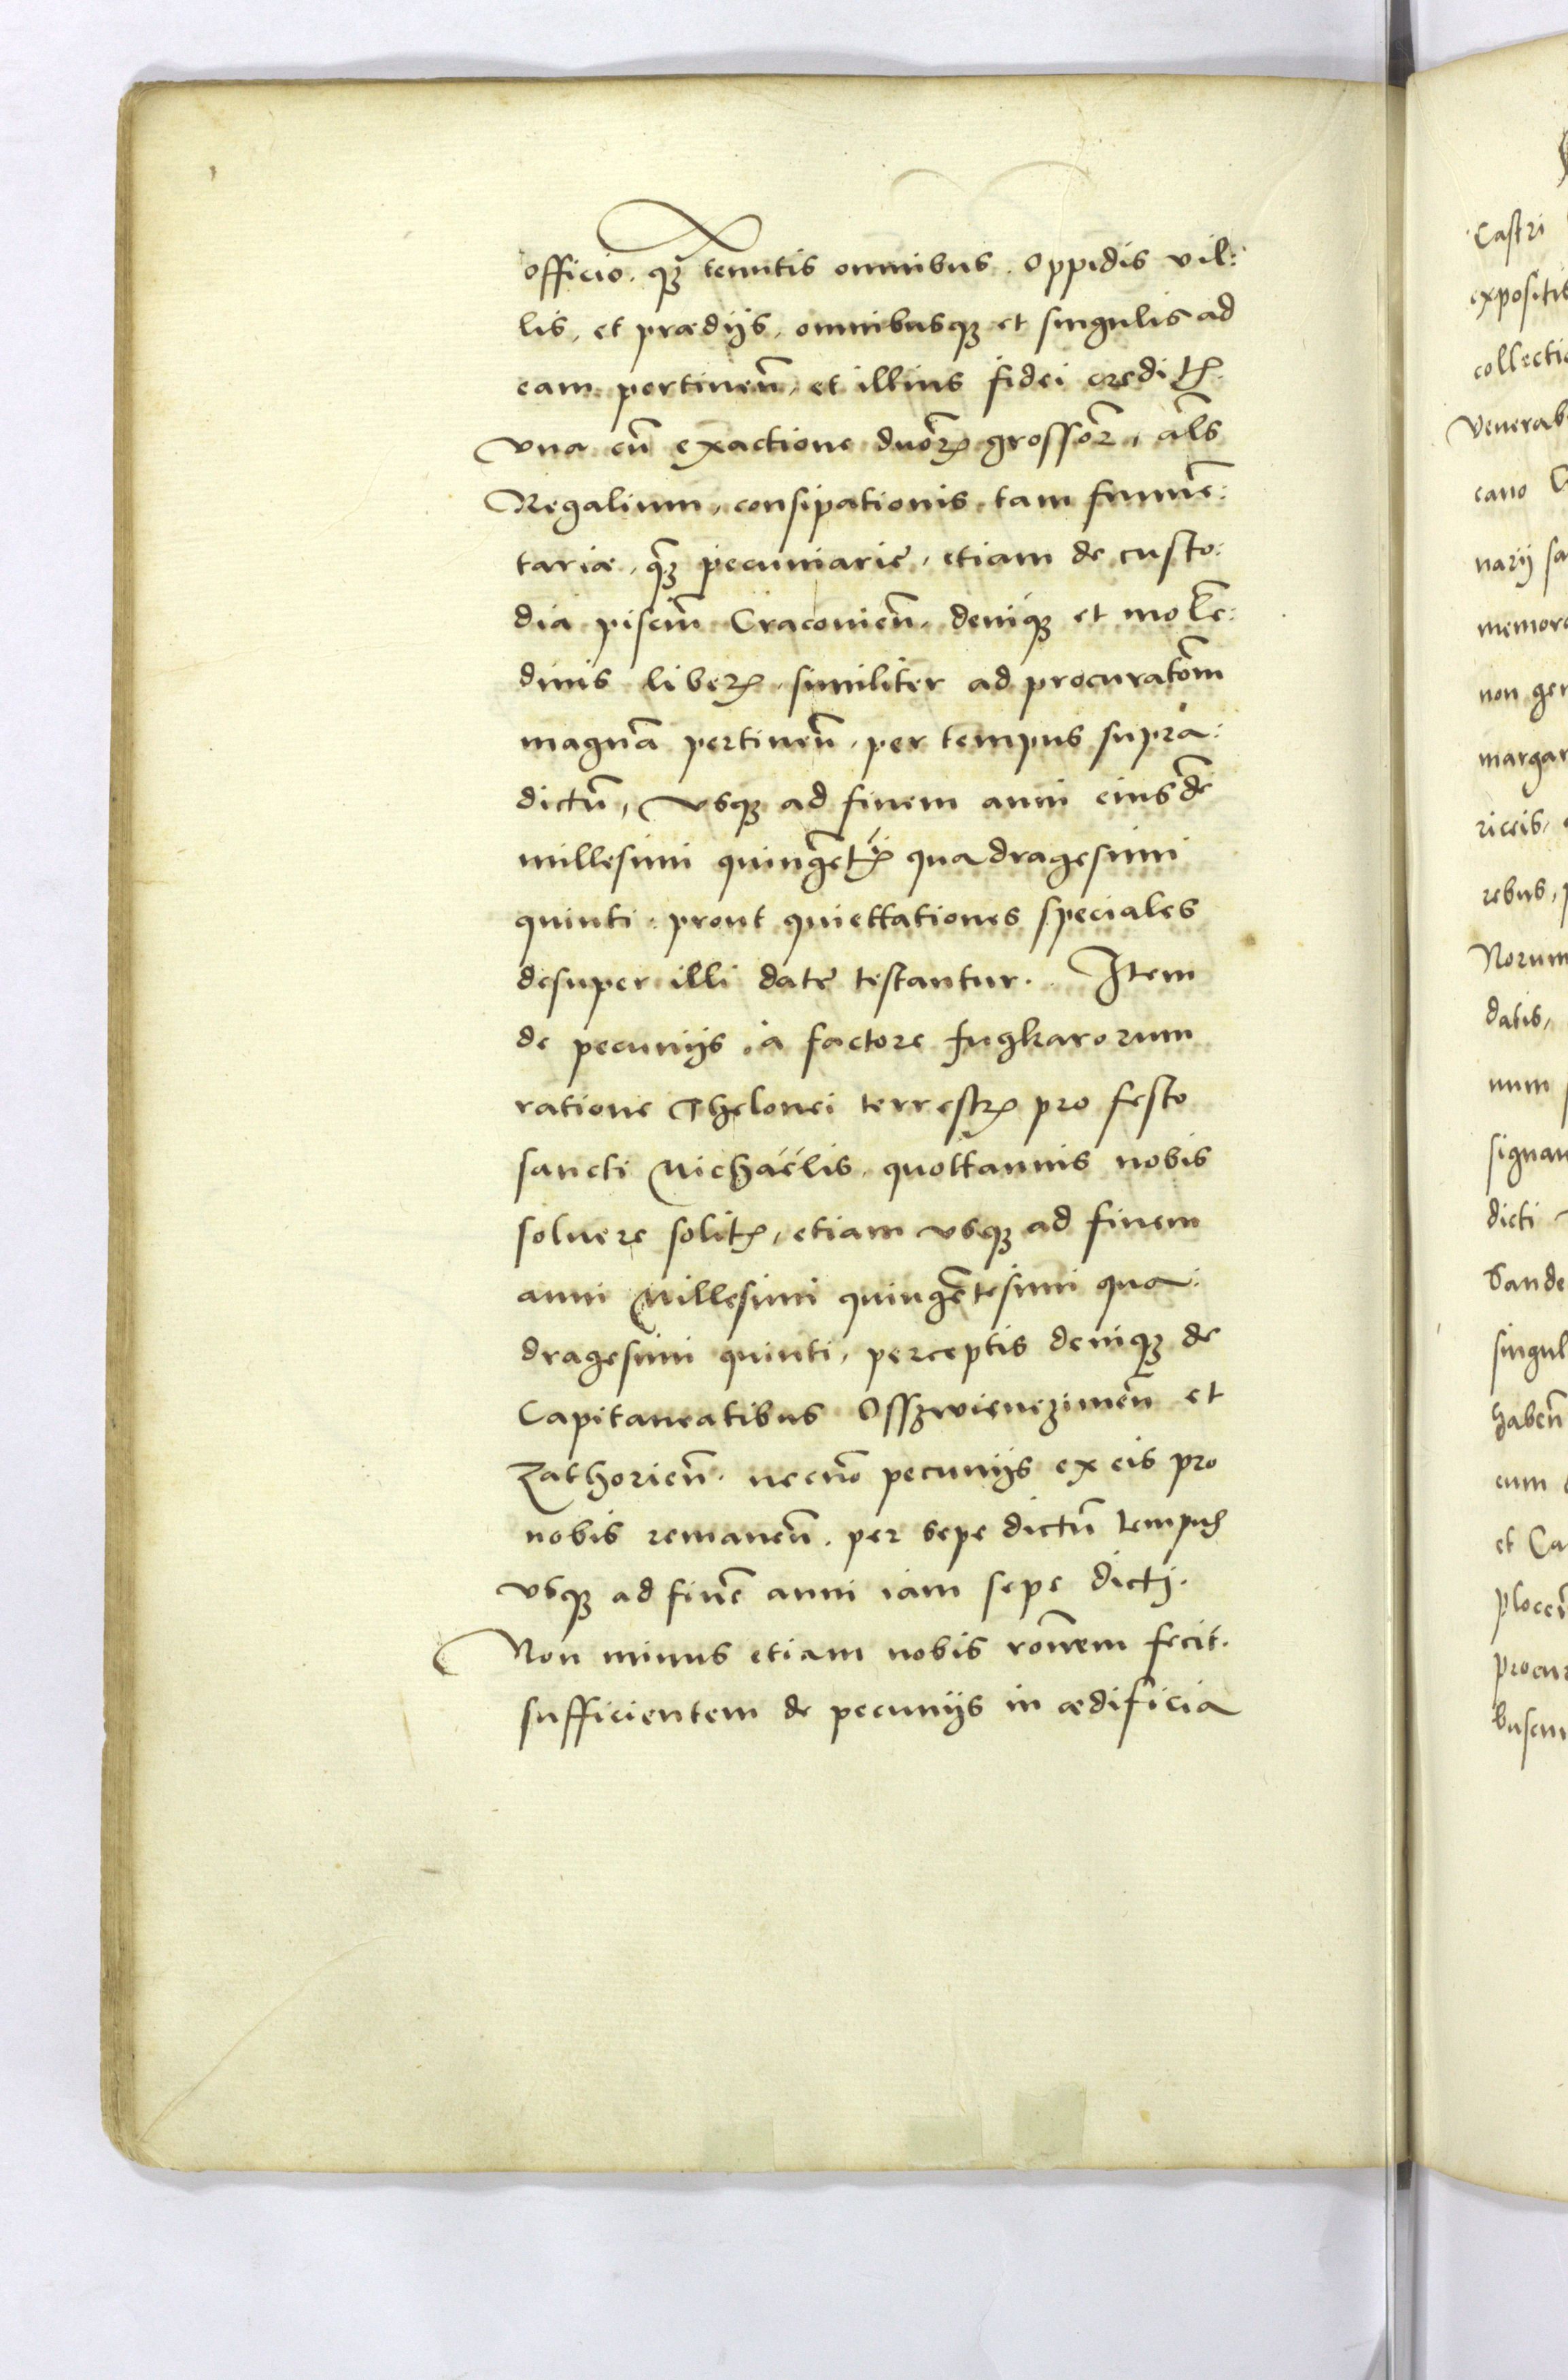 officio. qꝫ tenutis omnibus. Oppidis vil:
lis, et prædijs, omnibusqꝫ et singulis ad
eam pertineñ, et illius fidei creditꝭ
vna cũ exactione duõrꝝ grossõr, ãls
Regalium, consipationis tam frumẽ:
tariæ, qꝫ̃ pecuniarię, etiam de custo:
dia pisciũ Cracovieñ. deniqꝫ et molẽ:
dinis liberꝭ. similiter ad procuratõm
magnã pertineñ. per tempus supra:
dictũ, vsqꝫ ad finem anni eiusdẽ
millesimi quingẽtꝭĩ quadragesimi
quinti. prout quiettationes speciales
desuper illi datę testantur. Item
de pecunijs. à factore fugkarorum
ratione Thelonei terrestrꝭ pro festo
sancti Michaëlis. quottannis nobis
soluere solitꝭ, etiam vsqꝫ ad finem
anni Millesimi quingẽtesimi qua:
dragesimi quinti, perceptis deniqꝫ de
Capitaneatibus Osszwienczimeñ et
Zathorieñ. necnõ pecunijs ex eis pro
nobis remaneñ. per sepe dictũ tempus
vsqꝫ ad finẽ anni iam sepe dictj.
Non minus etiam nobis rõnem fecit.
sufficientem de pecunijs in ædificia
Castri
expositis
collectio
Venerab
cano
narij sa
memora
non ger
margar
riceis,
rebus,
Norum
datis,
num
signan
dicti
Sande
singul
habeñ
cum
et Ca
ploceñ
procur
buscun